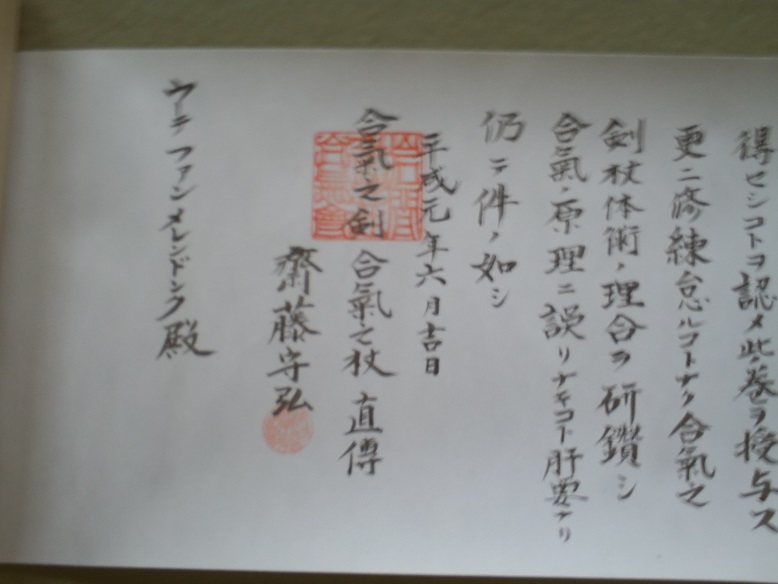 得セシコトヲ認メ此巻ヲ授与ス
更ニ修練怠ルコトナク合氣之
剣杖体術ノ理合ヲ研鑽シ
合氣ノ原理ニ誤リナキコト肝要ナリ
仍テ件ノ如シ
平成元年六月吉日
合氣之剣 合氣之杖 直傳
齋藤守弘
ウーテ ファン メレンドンク殿